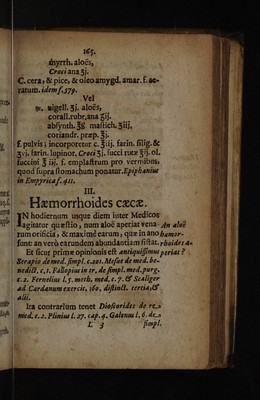 165.
myrrh. aloës,
Croci ana ʒj.
C. cera, & pice, & oleo amygd. amar. f. ce-
ratum. idem f. 379.
Vel
℞. nigell. ʒj. aloës,
corall. rubr. ana ʒij.
absynth. ʒß. mastich. ʒiij,
coriandr. præp. ʒj.
f. pulvis; incorporetur c. ʒiij. farin. silig. &
ʒvj. farin. lupinor. Croci ʒj. succi rutæ ol.
succini f. emplastrum pro vermibus,
quod supra stomachum ponatur. Epiphanius
in Empyrica f. 411.
III.
Hæmorrhoides cæcæ.
IN hodiernum usque diem inter Medicos
agitatur quæstio, num aloë aperiat vena-
rum orificia, & maximè earum, quæ in ano
sunt: an verò earundem abundantiam sistat.
An aloë
hæmor-
rhoides a-
periat?
Et sicut primæ opinionis est antiquissimus
Serapio de med. simpl. c. 201. Mesue de med. be-
nedict. c. 1. Fallopius in tr. de simpl. med. purg.
c. 2. Fernelius l. 5. meth. med. c. 7. & Scaliger
ad Cardanum exercit. 160. distinct. tertia, &
alii.
Ita contrarium tenet Dioscorides de re
med. c. 2. Plinius l. 27. cap. 4. Galenus l. 6. de
L 3
simpl.